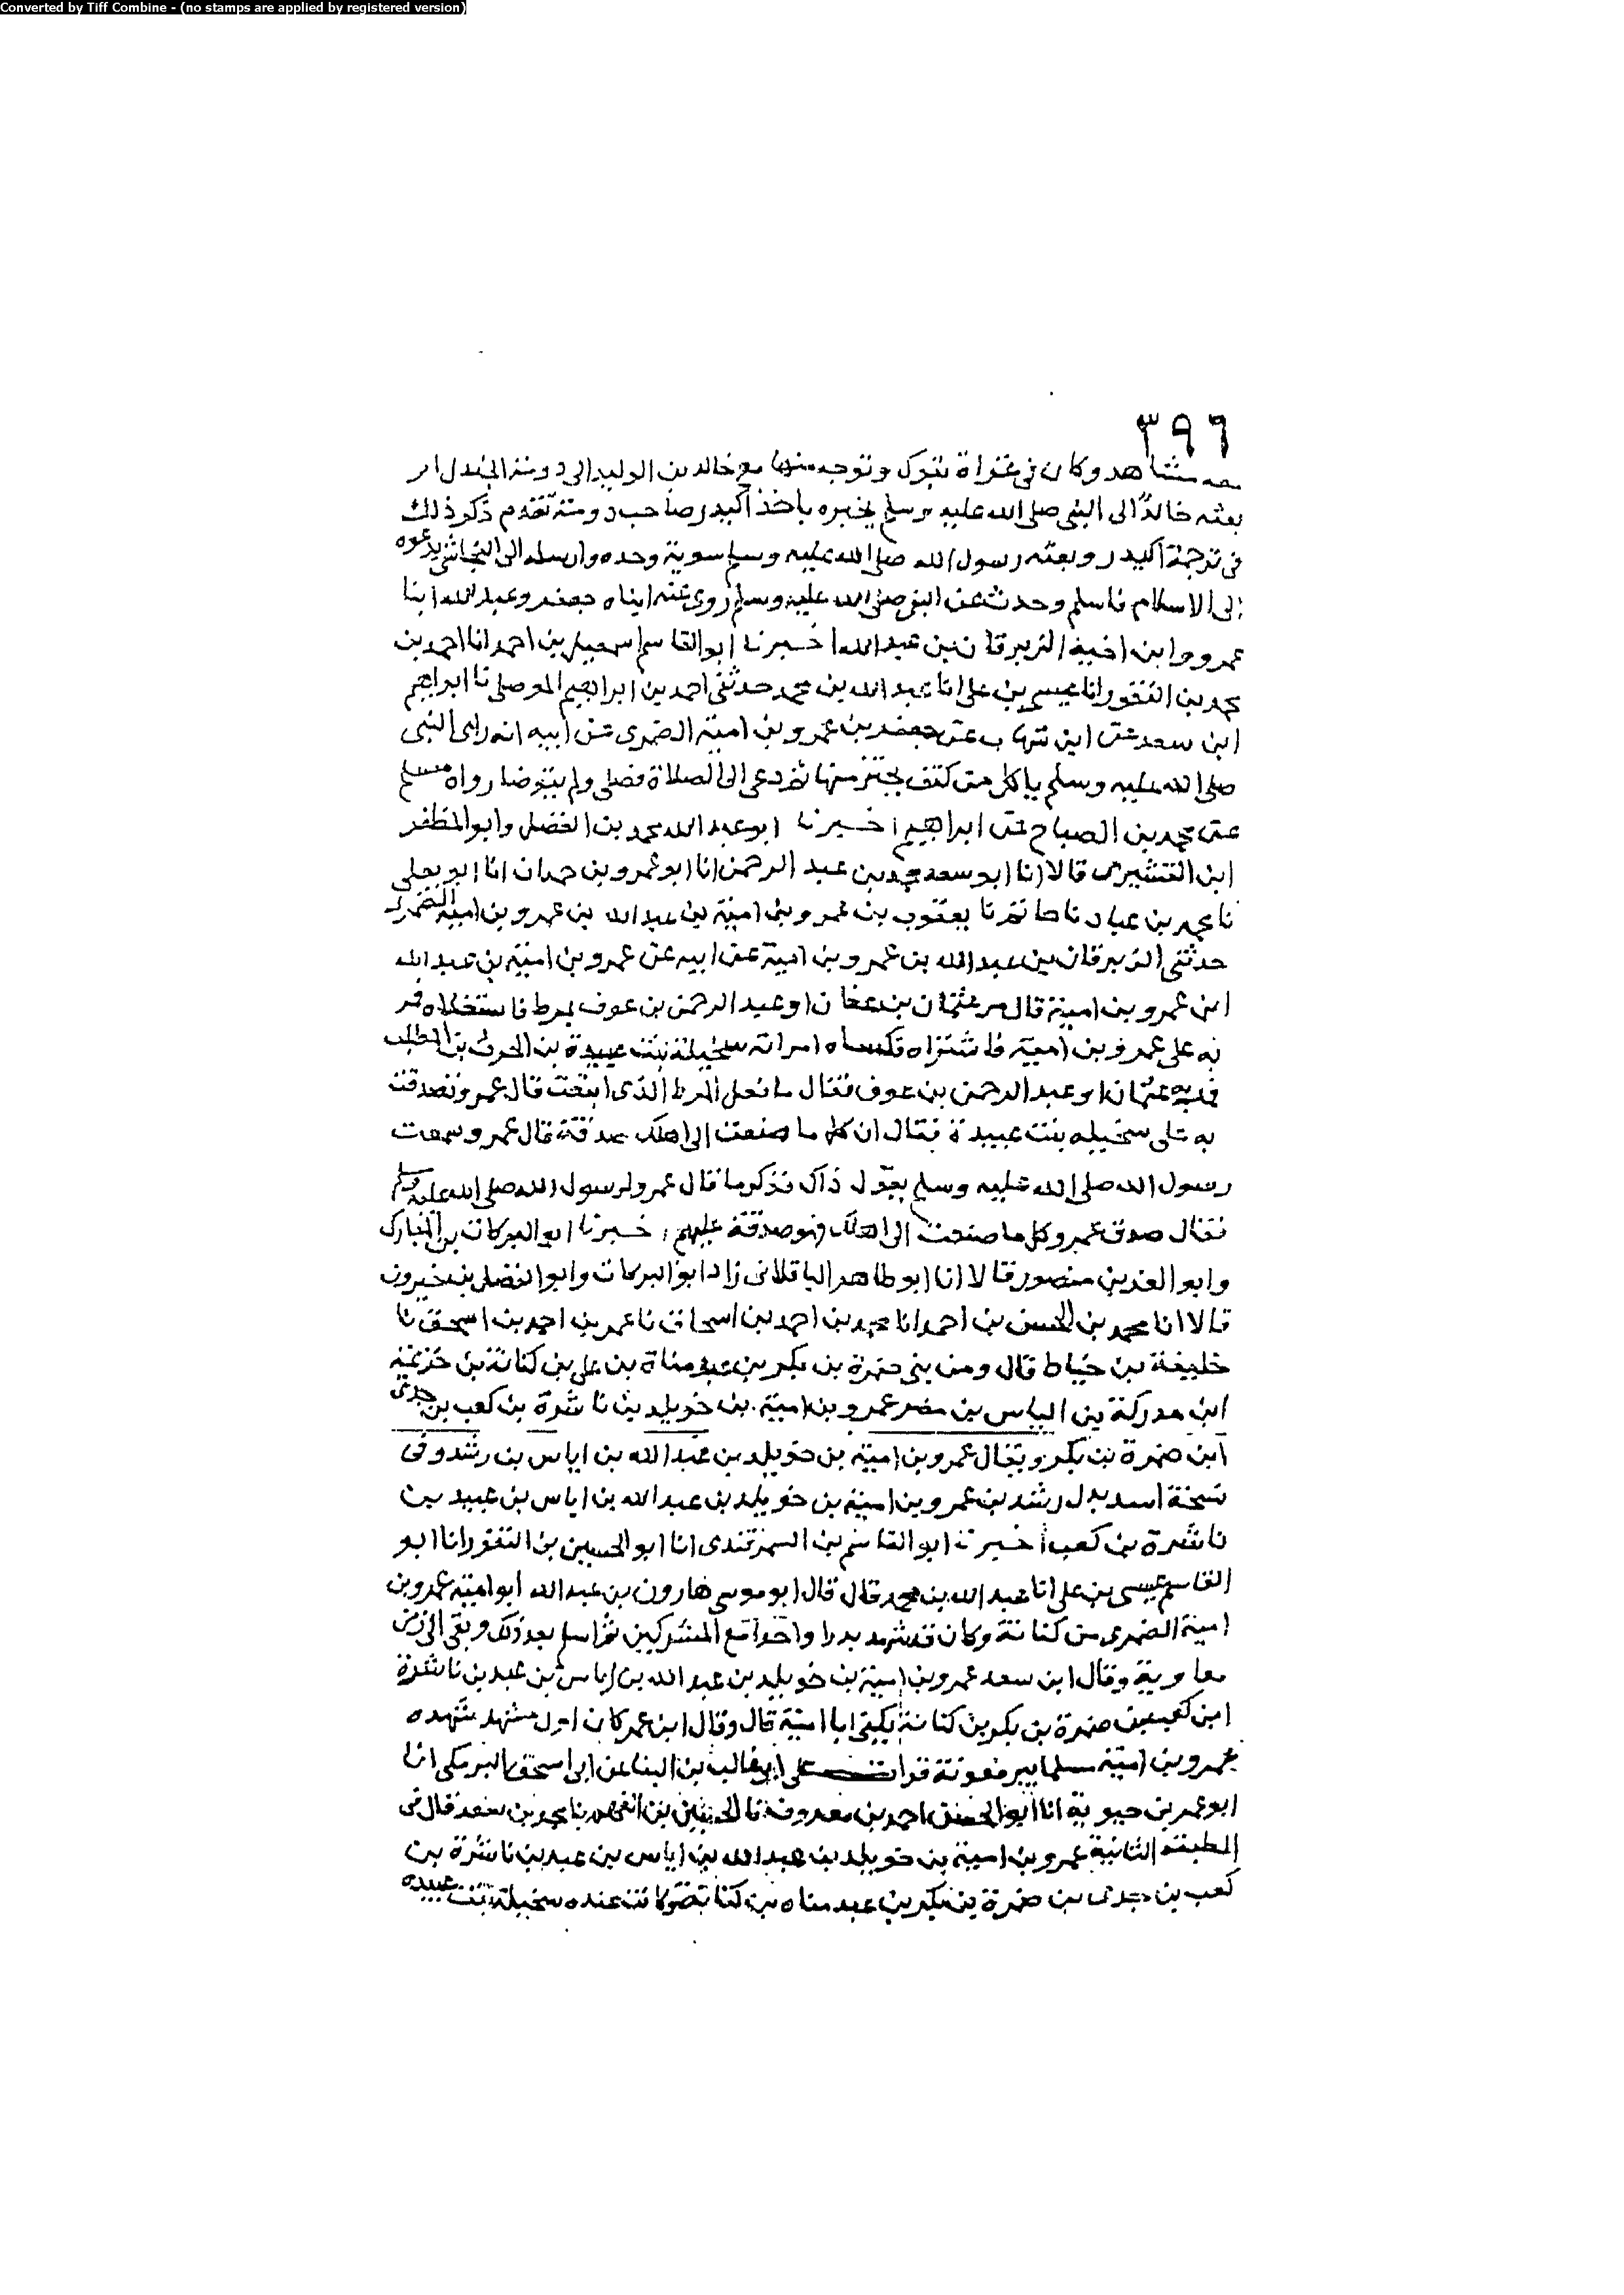 Converted by Tiff Combine - (no stamps are applied by registered version)
٣٩٦
معه مشاهد وكان في غزاة تبوك وتوجه منها مع خالد بن الوليد الى دومة الجندل
بعثه خالد الى النبي صلى الله عليه وسلم يخبره باخذ اكيدر صاحب دومة تقدم ذكر ذلك
في ترجمة اكيدر وبعثه رسول الله صلى الله عليه وسلم سرية وحده وارسله الى النجاشي يدعوه
الى الاسلام فاسلم وحدث عن النبي صلى الله عليه وسلم روى عنه ابناه جعفر وعبد الله ابنا
عمرو وابن اخيه الزبرقان بن عبد الله اخبرنا ابو القاسم اسمعيل بن احمد انا احمد بن
محمد بن النقور انا عيسى بن علي انا عبد الله بن محمد حدثني احمد بن ابراهيم الموصلي نا ابراهيم
ابن سعد عن ابن شهاب عن جعفر بن عمرو بن امية الضمري عن ابيه انه راى النبي
صلى الله عليه وسلم ياكل من كتف يحتز منها ثم دعى الى الصلاة فصلى ولم يتوضا رواه مسلم
عن محمد بن الصباح عن ابراهيم اخبرنا ابو عبد الله محمد بن الفضل وابو المظفر
ابن القشيري قالا انا ابو سعد محمد بن عبد الرحمن انا ابو عمرو بن حمدان انا ابو يعلى
نا محمد بن عباد نا حاتم نا يعقوب بن عمرو بن امية بن عبد الله بن عمرو بن امية الضمري
حدثني الزبرقان بن عبد الله بن عمرو بن امية عن ابيه عن عمرو بن امية بن عبد الله
ابن عمرو بن امية قال مر عثمان بن عفان او عبد الرحمن بن عوف بمرط فاستغلاه فمر
به على عمرو بن امية فاشتراه فكساه امراته سخيلة بنت عبيدة بن الحرث بن المطلب
فمر به عثمان او عبد الرحمن بن عوف فقال ما فعل المرط الذي ابتعت قال عمرو تصدقت
به على سخيله بنت عبيدة فقال ان كل ما صنعت الى اهلك صدقة قال عمرو سمعت
رسول الله صلى الله عليه وسلم يقول ذاك فذكر ما قال عمرو لرسول الله صلى الله عليه وسلم
فقال صدق عمرو كل ما صنعت الى اهلك فهو صدقة عليهم اخبرنا ابو البركات بن المبارك
وابو العز بن منصور قالا انا ابو طاهر الباقلاني زاد ابو البركات وابو الفضل بن خيرون
قالا انا محمد بن الحسن بن احمد انا محمد بن احمد بن اسحاق نا عمر بن احمد بن اسحق نا
خليفة بن خياط قال ومن بني ضمرة بن بكر بن عبد مناة بن علي بن كنانة بن خزيمة
ابن مدركة بن الياس بن مضر عمرو بن امية بن خويلد بن ناشرة بن كعب بن جدى
ابن ضمرة بن بكر ويقال عمرو بن امية بن خويلد بن عبد الله بن اياس بن رشد وفي
نسخة اسد بدل رشد بن عمرو بن امية بن خويلد بن عبد الله بن اياس بن عبيد بن
ناشرة بن كعب اخبرنا ابو القاسم بن السمرقندي انا ابو الحسين بن النقور انا ابو
القاسم عيسى بن علي انا عبد الله بن محمد قال قال ابو موسى هارون بن عبد الله ابو امية عمرو بن
امية الضمري من كنانة وكان قد شهد بدرا واحدا مع المشركين ثم اسلم بعد ذلك وبقي الى زمن
معاوية وقال ابن سعد عمرو بن امية بن خويلد بن عبد الله بن اياس بن عبد بن ناشرة
ابن كعب بن ضمرة بن بكر بن كنانة يكنى ابا امية قال وقال ابن عمر كان اول مشهد شهده
عمرو بن امية مسلما بير معونة قرات على ابي غالب بن البنا عن ابي اسحق البرمكي انا
ابو عمر بن حيوية انا ابو الحسن احمد بن معروف نا الحسين بن الفهم نا محمد بن سعد قال في
الطبقة الثانية عمرو بن امية بن خويلد بن عبد الله بن اياس بن عبد بن ناشرة بن
كعب بن جدى بن ضمرة بن بكر بن عبد مناه بن كنانة وكانت عنده سخيلة بنت عبيده